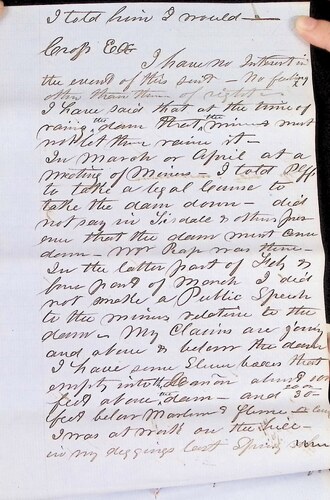 I told him I would —
Cross Ex
I have no Interest in
the event of this suit — No feeling
other than them of right
I have said that at the time of
raising the dam that the miners must
not let them raise it —
In March or April at a
meeting of Miners — I told Plffs
to take a legal course to
take the dam down — did
not say in Tisdale & others pres
ence that the dam must come
down — was there —
In the latter part of Feb &
fore part of March I did
not make a Public Speech
to the miners relative to the
dam — My Claims are joining
and above & below the dam
I have some Sluice boxes that
empt into the about
feet above the dam — and 30
feet below flume —
I was at work on the
in my diggings last Spring